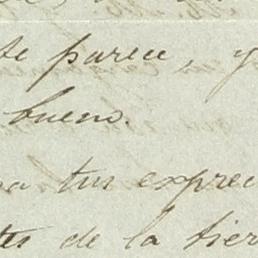 te parece, y
bueno.
a tus expre
tes de la tier